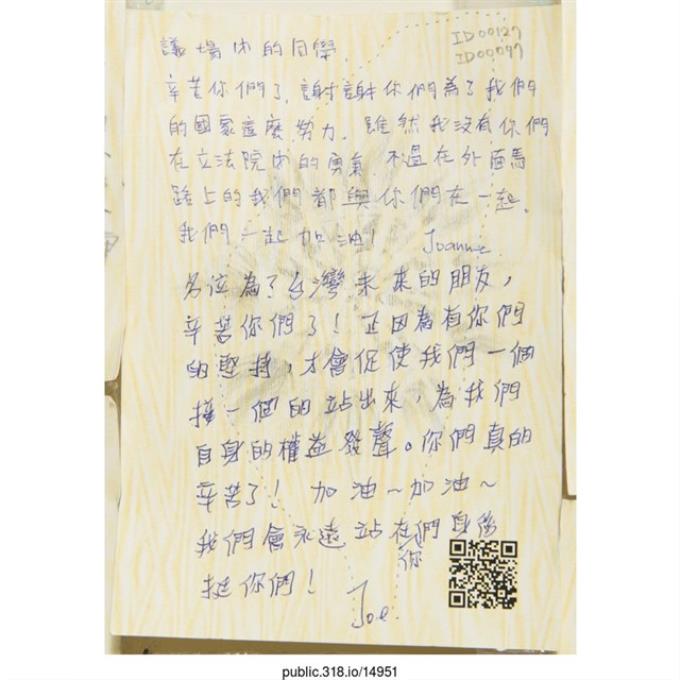 ID00127
ID00097
議場內的同學
辛苦你們了, 謝謝你們為了我們
的國家這麼努力. 雖然我沒有你們
在立法院內的勇氣 不過在外面馬
路上的我們都與你們在一起.
我們一起加油!
Joanne
各位為了台灣未來的朋友,
辛苦你們了! 正因為有你們
的堅持, 才會促使我們一個
接一個的站出來, 為我們
自身的權益發聲。你們真的
辛苦了! 加油~加油~
我們會永遠站在你們身後
挺你們!
Joe.
public.318.io/14951